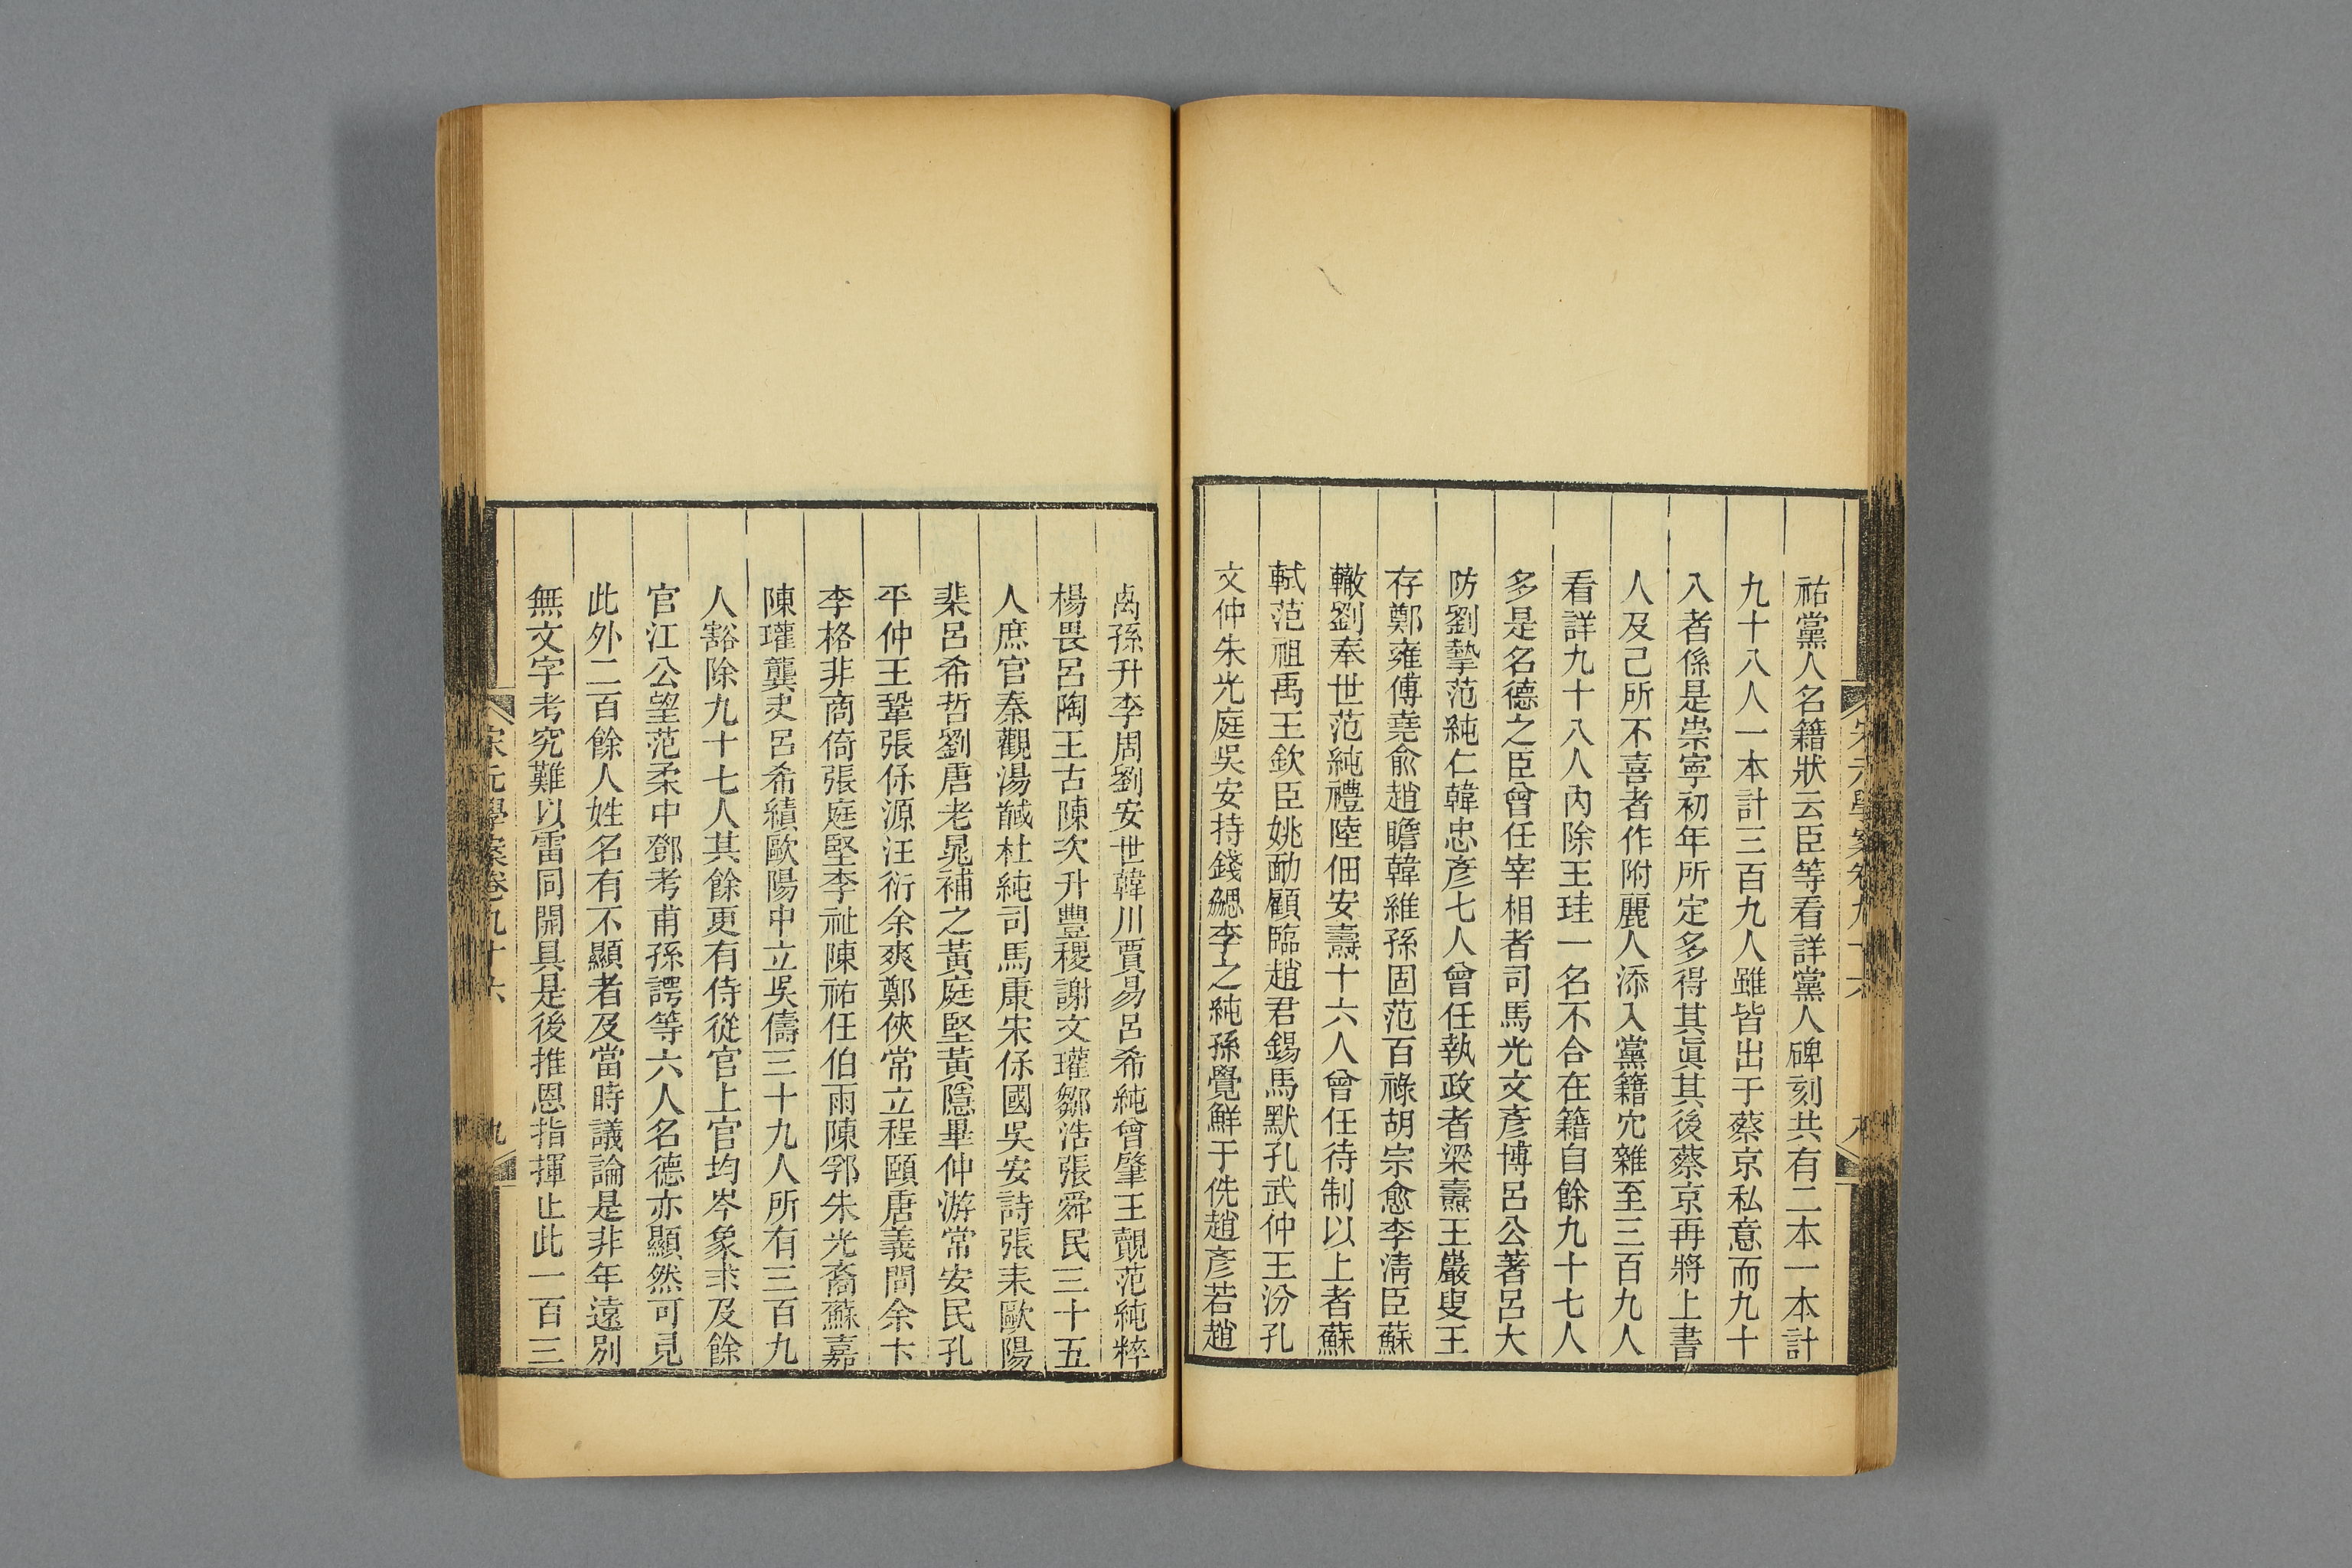 祐黨人名籍狀云臣等看詳黨人碑刻共有二本一本計
九十八人一本計三百九人雖皆出于蔡京私意而九十
八者係是崇寧初年所定多得其眞其後蔡京再將上書
人及己所不喜者作附麗人添入黨籍冗雜至三百九人
看詳九十八人內除王珪一名不合在籍自餘九十七人
多是名德之臣曾任宰相者司馬光文彥博呂公著呂大
防劉摯范純仁韓忠彥七人曾任執政者梁燾王巖叟王
存鄭雍傅堯俞趙瞻韓維孫固范百祿胡宗愈李淸臣蘇
轍劉奉世范純禮陸佃安燾十六人曾任待制以上者蘇
軾范祖禹王欽臣姚勔顧臨趙君錫馬默孔武仲王汾孔
文仲朱光庭吳安持錢勰李之純孫覺鮮于侁趙彥若趙
卨孫升李周劉安世韓川賈易呂希純曾肇王覿范純粹
楊畏呂陶王古陳次升豐稷謝文瓘鄒浩張舜民三十五
人庶官秦觀湯馘杜純司馬康宋保國吳安詩張耒歐陽
棐呂希哲劉唐老晁補之黃庭堅黃隱畢仲游常安民孔
平仲王鞏張保源汪衍余爽鄭俠常立程頤唐義問余卞
李格非商倚張庭堅李祉陳祐任伯雨陳郛朱光裔蘇嘉
陳瓘龔夬呂希績歐陽中立吳儔三十九人所有三百九
人豁除九十七人其餘更有侍從官上官均岑象求及餘
官江公望范柔中鄧考甫孫諤等六人名德亦顯然可見
此外二百餘人姓名有不顯者及當時議論是非年遠別
無文字考究難以雷同開具是後推恩指揮止此一百三
宋元學案卷九十六
九